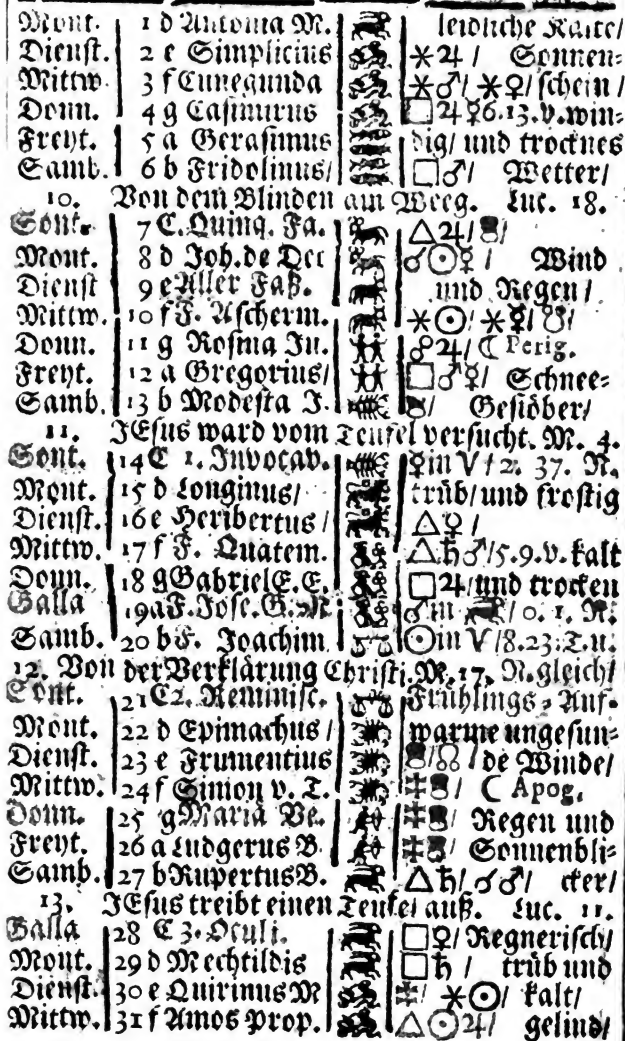 Mont. 1 d Antonia M. leidliche Kälte/
Dienst. 2 e Simplicius ⚹♃/ Sonnen=
Mittw 3 f Cunegunda ⚹♂/ ⚹♀/ schein /
Donn. 4 g Casimurus □♃☿6.13.v.win=
Freyt. 5 a Gerasimus dig/ und trocknes
Samb. 6 b Fridolinus/ □♂/ Wetter/
10. Von dem Blinden am Weeg. Luc. 18.
Sont. 7 C. Quinq. Fa. △♃/
Mont. 8 d Joh. de Dec ☌☉☿ / Wind
Dienst 9 e Aller Faß. und Regen /
Mittw. 10 f F. Ascherm. ⚹☉/ ⚹☿/ ☋/
Donn. 11 g Rosina Ju. ☍♃/ ☾ Perig.
Freyt. 12 a Gregorius/ □♂☿/ Schnee=
Samb. 13 b Modesta J. Gestöber/
11. JEsus ward vom Teufel versucht. M. 4.
Sont. 14 C 1. Invocav. ☿ in ♈ / 2. 37. N.
Mont. 15 d Longinus/ trüb/ und frostig
Dienst. 16 e Heribertus / △♀ /
Mittw. 17 f F. Quatem. △♄♂/5.9.v. kalt
Donn. 18 g Gabriel E. E. □♃/ und trocken
Galla 19 a F. Jose. G. M: ♂ in /0. 1. N.
Samb. 20 b F. Joachim ☉ in ♈/8.23.T.u.
12. Von der Verklärung Christi. M. 17. N. gleich/
Sont. 21 C 2. Reminisc. Frühlings = Anf.
Mont. 22 d Epimachus / warme ungesun=
Dienst. 23 e Frumentius ☊ / de Winde/
Mittw. 24 f Simon v. T. ☾ Apog.
Donn. 25 g Mariä Ve. Regen und
Freyt. 26 a Ludgerus B. Sonnenbli=
Samb. 27 b Rupertus B. △♄/ ☌♂/ cker/
13. JEsus treibt einen Teufel auß. Luc. 11.
Galla 28 C 3. Oculi. □♀/ Regnerisch/
Mont. 29 d Mechtildis □♄ / trüb und
Dienst. 30 e Quirinus M ⚹☉/ kalt/
Mittw. 31 f Amos Prop. △☉♃/ gelind/